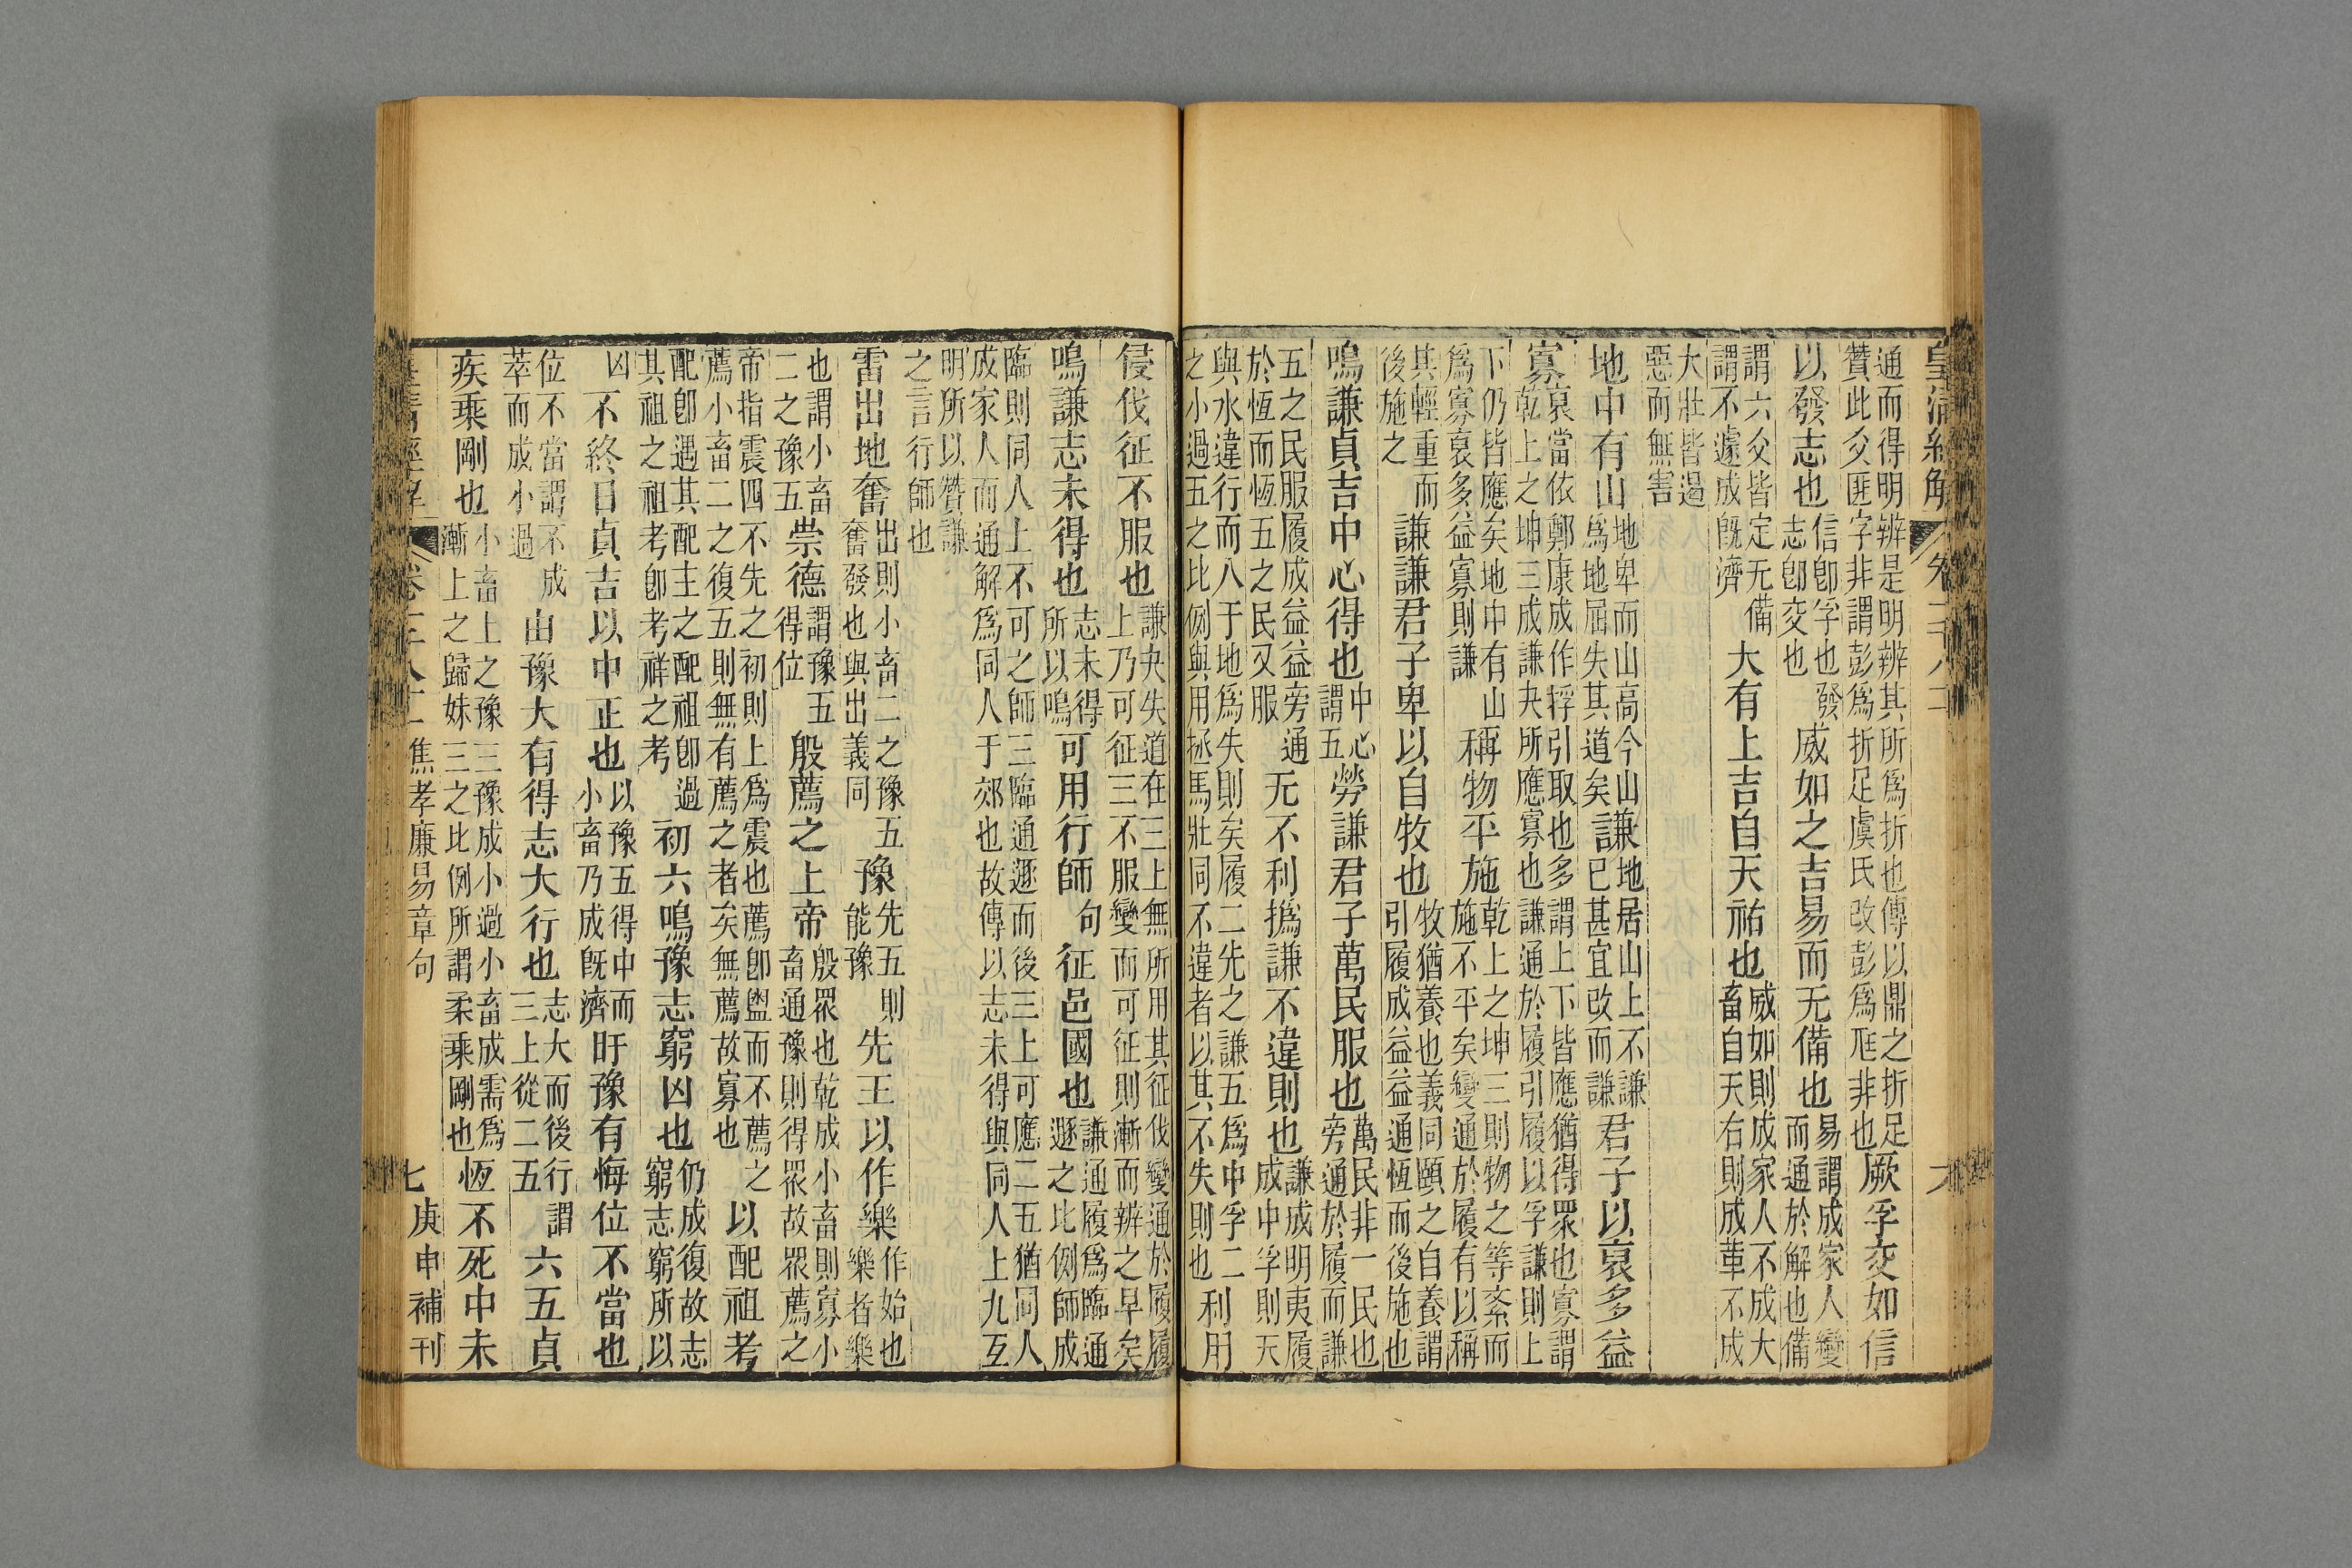 皇清經解 卷一千八十二 六
通而得明辨是明辨其所爲折也傳以鼎之折足贊此爻匪字非謂彭爲折足虞氏改彭爲尫非也厥孚交如信
以發志也信卽孚也發志卽交也威如之吉易而无備也易謂成家人變而通於解也備
謂六爻皆定无備謂不遽成旣濟大有上吉自天祐也威如則成家人不成大畜自天右則成革不成
大壯皆遏惡而無害
地中有山地卑而山高今山爲地屈失其道矣謙地居山上不謙已甚宜改而謙君子以裒多益
寡裒當依鄭康成作捊引取也多謂上下皆應得眾也寡謂乾上之坤三成謙夬所應寡也謙通於履引履以孚謙則上
下仍皆應矣地中有山爲寡裒多益寡則謙稱物平施乾上之坤三則物之等紊而施不平矣變通於履有以稱
其輕重而後施之謙謙君子卑以自牧也牧猶養也義同頤之自養謂引履成益益通恆而後施也
鳴謙貞吉中心得也中心謂五勞謙君子萬民服也萬民非一民也旁通於履而謙
五之民服履成益益旁通於恆而恆五之民又服无不利撝謙不違則也謙成明夷履成中孚則天
與水違行而八于地爲失則矣履二先之謙五爲中孚二之小過五之比例與用拯馬壯同不違者以其不失則也利用
侵伐征不服也謙夬失道在三上無所用其征伐變通於履履上乃可征三不服變而可征則漸而辨之早矣
鳴謙志未得也志未得所以鳴可用行師句征邑國也謙通履爲臨通遯之比例師成
臨則同人上不可之師三臨通遯而後三上可應二五猶同人成家人而通解爲同人于郊也故傳以志未得與同人上九互
明所以贊謙之言行師也
雷出地奮出則小畜二之豫五奮發也與出義同豫先五則能豫先王以作樂作始也樂者樂
也謂小畜二之豫五崇德謂豫五得位殷薦之上帝殷眾也乾成小畜則寡小畜通豫則得眾故眾薦之
帝指震四不先之初則上爲震也薦卽盥而不薦之薦小畜二之復五則無有薦之者矣無薦故寡也以配祖考
配卽遇其配主之配祖卽過其祖之祖考卽考祥之考初六鳴豫志窮凶也仍成復故志窮志窮所以
凶不終日貞吉以中正也以豫五得中而小畜乃成旣濟盱豫有悔位不當也
位不當謂不成萃而成小過由豫大有得志大行也志大而後行謂三上從二五六五貞
疾乘剛也小畜上之豫三豫成小過小畜成需爲漸上之歸妹三之比例所謂柔乘剛也恆不死中未
皇清經解 卷一千八十二 焦孝廉易章句 七 庚申補刊